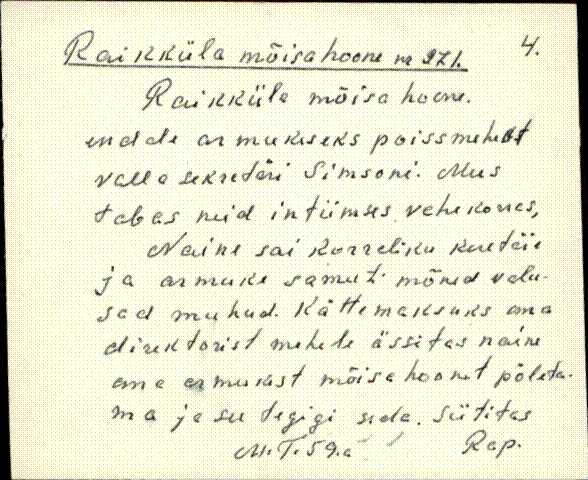 Raikküla mõisahoone nr 271. 4.
Raikküla mõisa hoone.
endale armukeseks poissmehest
valla sekretäri Simsoni. Mees
tabas neid intiimses vahekorras,
Naine sai korraliku keretäie
ja armuke samuti mõned valu-
sad muhud. Kättemaksuks oma
direktorist mehele ässitas naine
oma armukest mõisahoonet põleta-
ma ja see tegigi seda. Süütas
M.T. 59.a Rap.